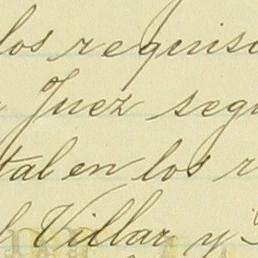 los requisi
Juez segu
tal en los r
Villar y